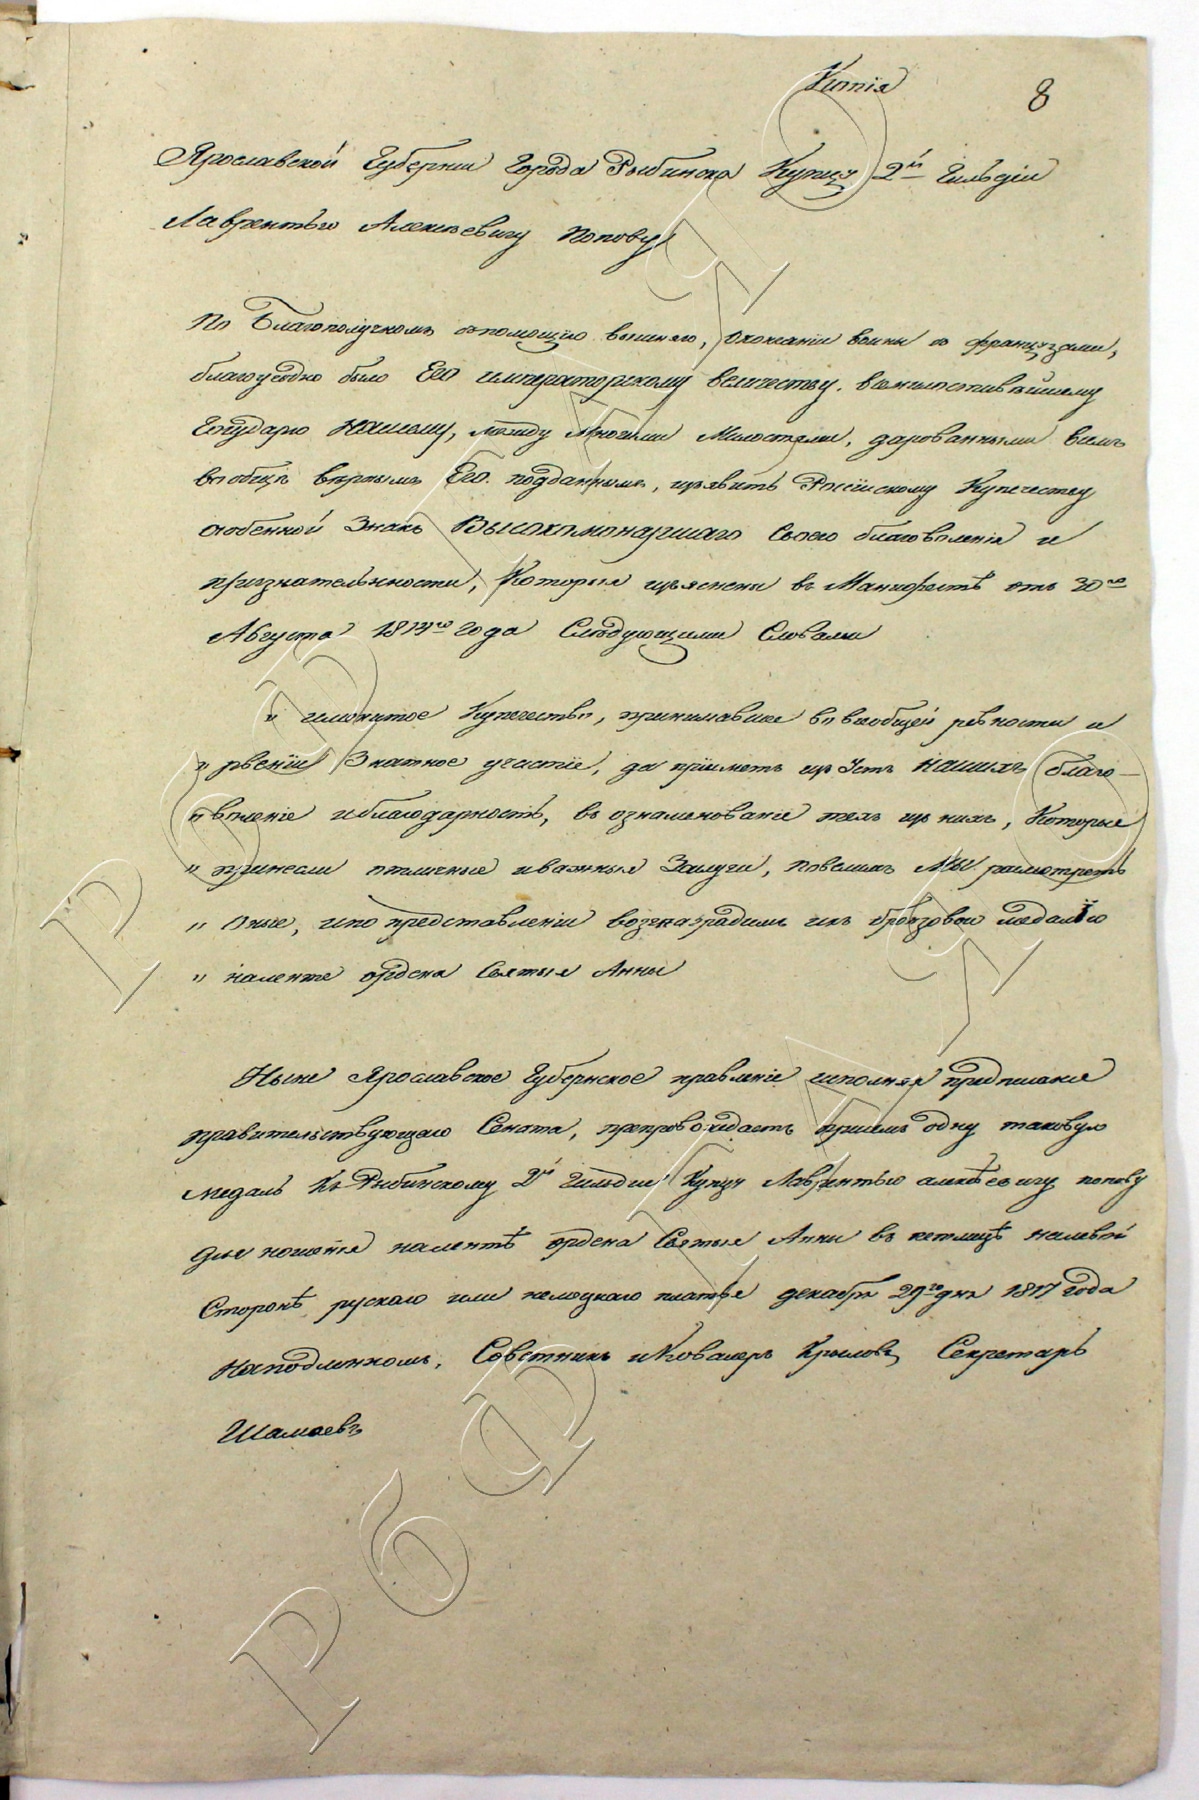 Копія
8
Ярославской Губерніи Города Рыбинска Купцу 2й Гильдіи
Лаврентью Алексѣевичу Попову
По Благополучномъ съпомощію вышняго, окончаніи воины съ французами,
благоугодно было Его императорскому величеству, всемилостивѣйшему
Государю Нашему, между многими Милостями, дарованными всѣмъ
вообще вѣрнымъ Его подданнымъ, изъявить Россійскому Купечеству
особенной Знакъ Высокомонаршаго Своего благоволенія и
признательности, Которыя изъяснены въ Манифестѣ отъ 30го
Августа 1814го года Слѣдующими Словами
„ имянитое Купечество, принимавшее во всеобщей ревности и
„ рвеніи Знатное участіе, да приметъ изъ Устъ Нашихъ благо-
„ воленіе иблагодарность, въ ознаменованіе техъ изъ нихъ, Которые
„ принесли отличные иважныя Заслуги, повелимъ Мы разсмотреть
„ Оные, ипо представленіи возънаградимъ ихъ бронзовою медалью
„ наленте ордена Святыя Анны
Ныне Ярославское Губернское правленіе исполняя предписаніе
правительствующаго Сената, препровождаетъ присемъ одну таковую
медаль Къ Рыбинскому 2й Гильдіи Купцу Лаврентью алексѣевичу попову
для ношенія налентѣ ордена Святыя Анны въ петлицѣ налевой
Сторонѣ рускаго или немецкаго платья декабря 29го дня 1817 года
Наподлинномъ, Советникъ иКовалеръ Крыловъ Секретарь
Шамаевъ
РбФ ГАЯО
РбФ ГАЯО